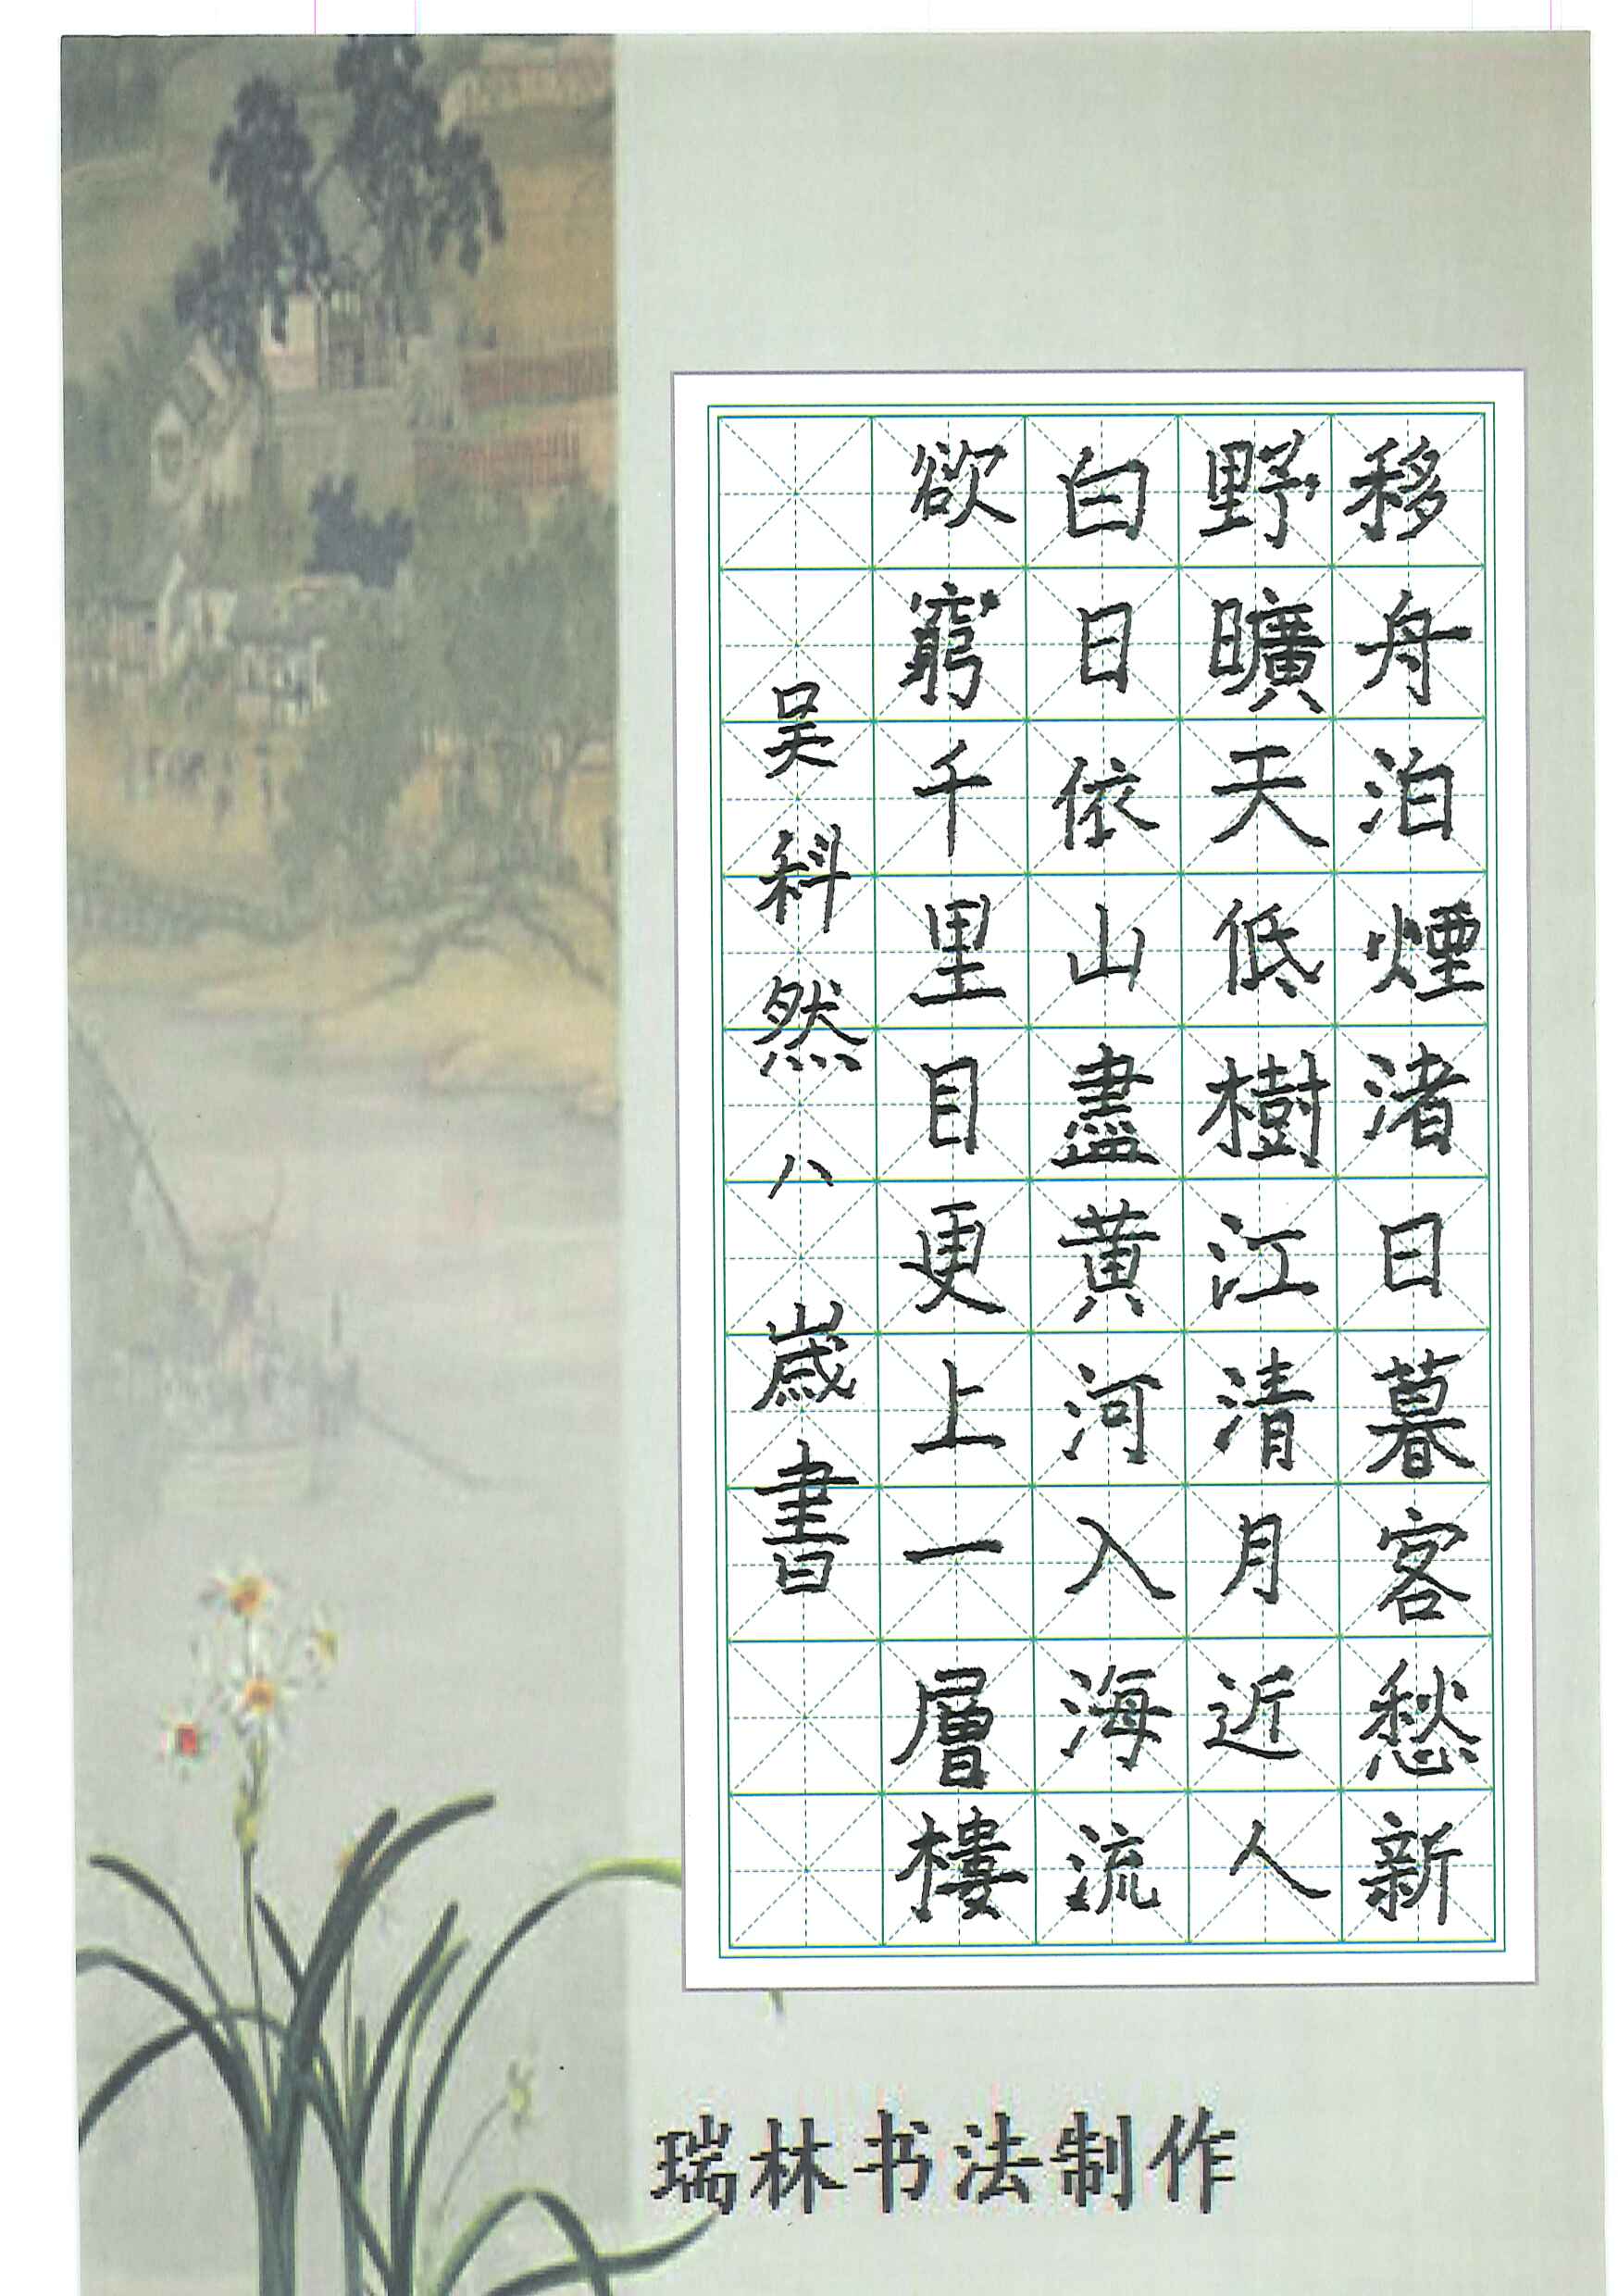 移舟泊煙渚日暮客愁新
野曠天低樹江清月近人
白日依山盡黄河入海流
欲窮千里目更上一層樓
吴科然八歲書
瑞林书法制作